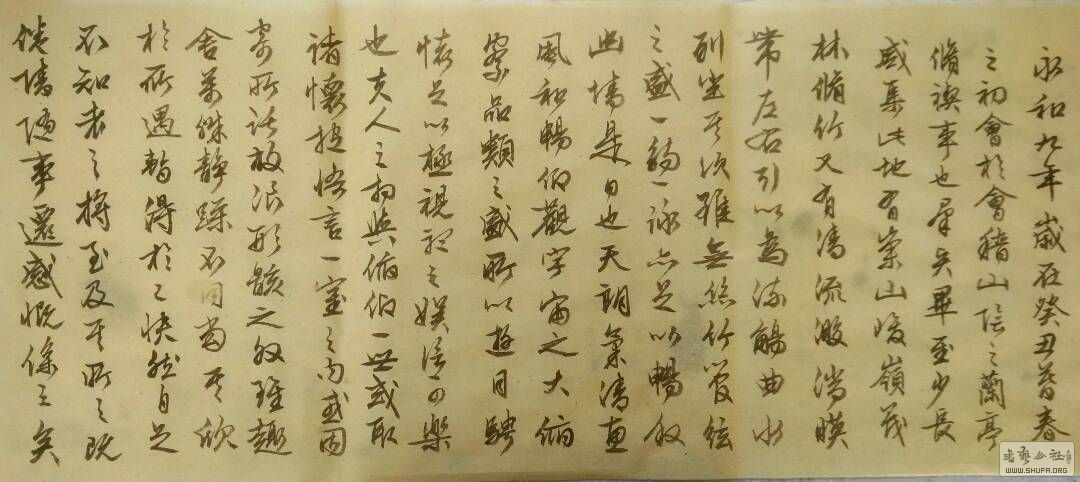 永和九年歲在癸丑暮春
之初會於會稽山陰之蘭亭
脩禊事也羣賢畢至少長
咸集此地有崇山峻嶺茂
林脩竹又有清流激湍暎
帶左右引以為流觴曲水
列坐其次雖無絲竹管絃
之盛一觴一詠亦足以暢敘
幽情是日也天朗氣清惠
風和暢仰觀宇宙之大俯
察品類之盛所以遊目騁
懷足以極視聽之娛信可樂
也夫人之相與俯仰一世或取
諸懷抱悟言一室之內或因
寄所託放浪形骸之外雖趣
舍萬殊靜躁不同當其欣
於所遇暫得於己快然自足
不知老之將至及其所之既
惓情隨事遷感慨係之矣
書藝公社
WWW.SHUFA.ORG